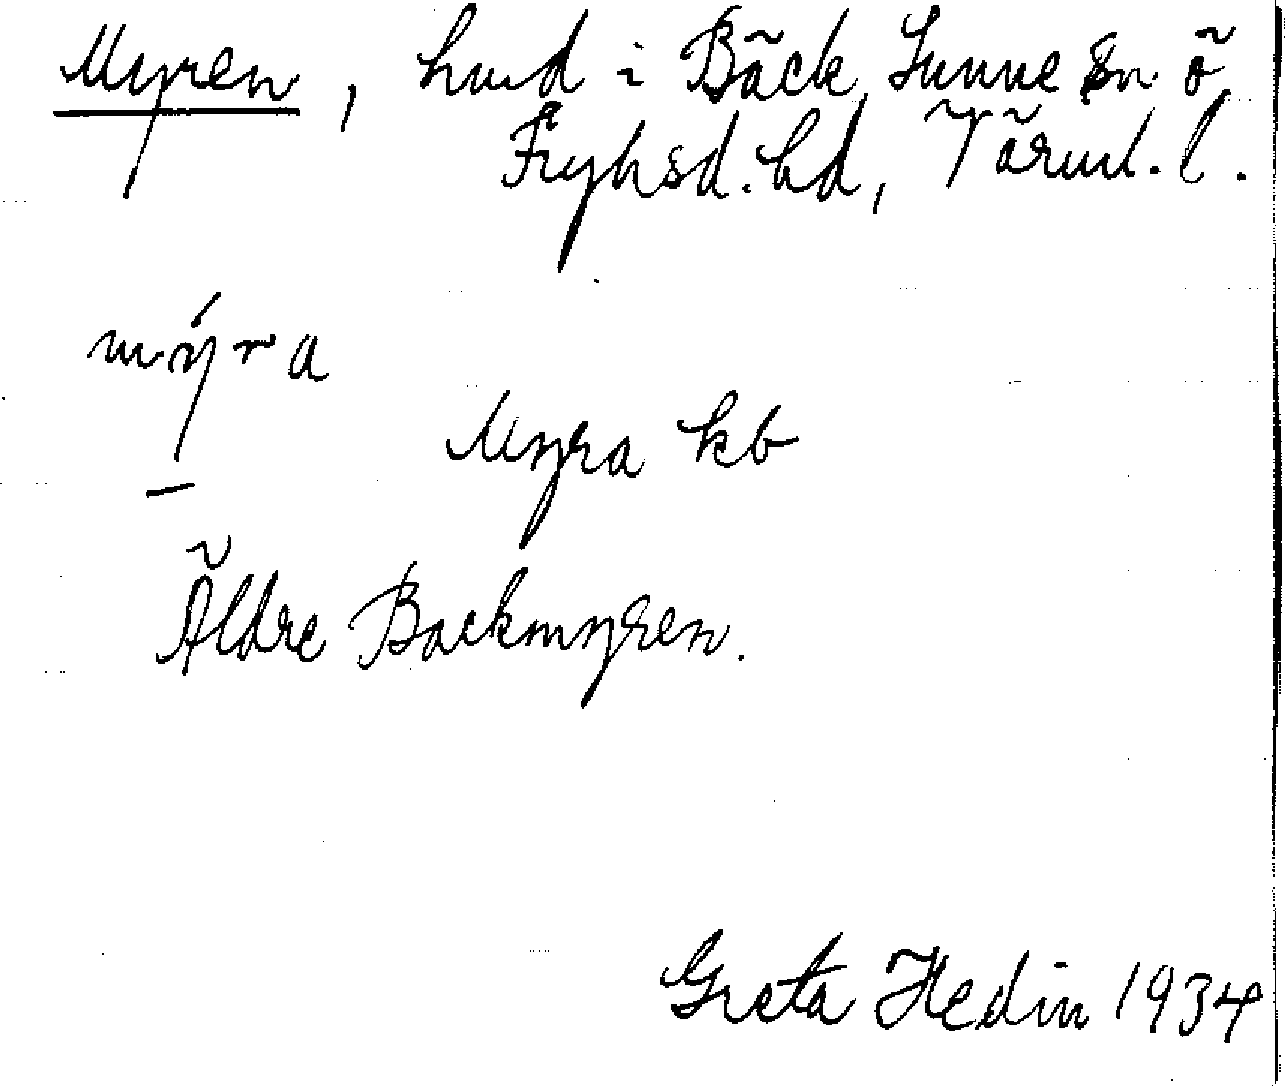 Myren, hmd i Bäck, Sunne sn Ö
Fryksd. hd, Värml. l.
mýra
Myra kb
Äldre Backmyren.
Greta Hedin 1934